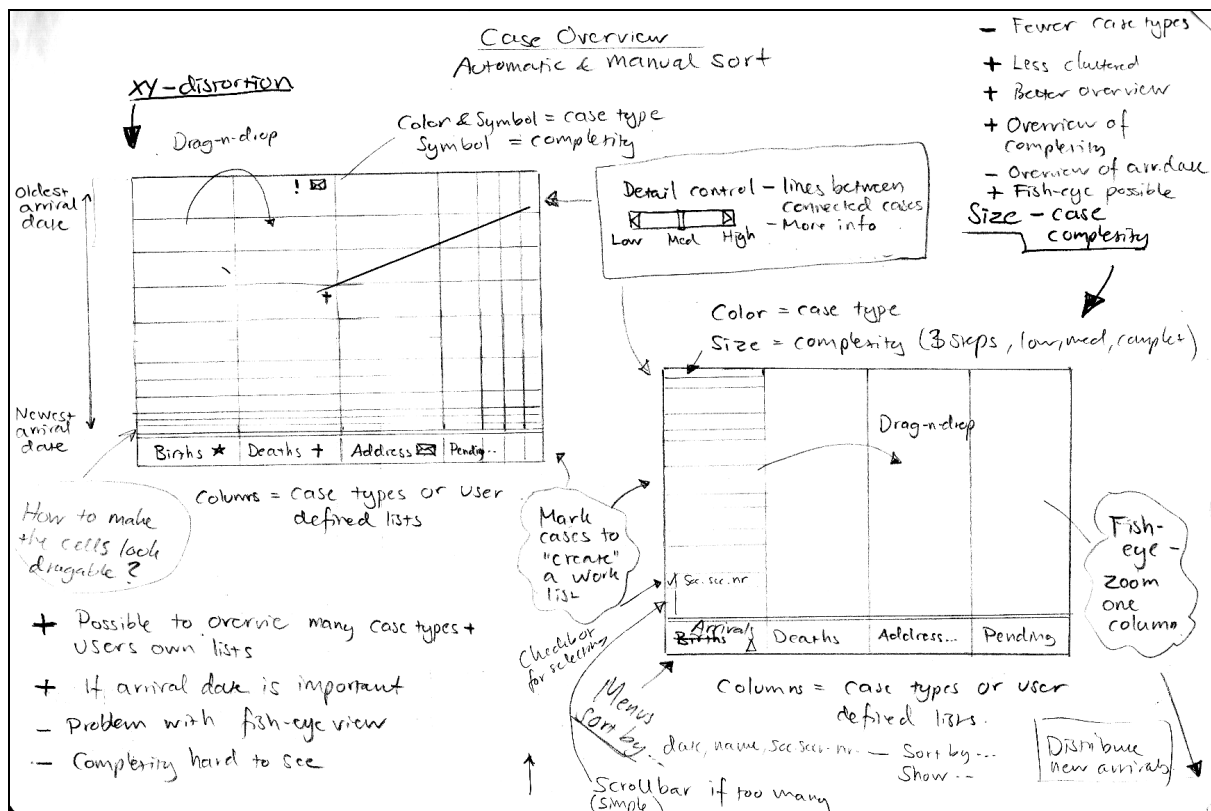 Case Overview
Automatic & manual sort
XY-distortion
Drag-n-drop
Color & Symbol = case type
Symbol = complexity
Oldest
arrival
date
!
Newest
arrival
date
Births
Deaths
Address
Pendig..
Columns = case types or user
defined lists
How to make
the cells look
dragable?
+ Possible to overvie many case types +
users own lists
+ If arrival date is important
- Problem with fish-eye view
- Complexity hard to see
Detail control - lines between
connected cases
- More info
Low Med High
- Fewer case types
+ Less cluttered
+ Better overview
+ Overview of
complexity
- Overview of arr.date
+ Fish-eye possible
Size - case
complexity
Color = case type
Size = complexity (3 steps, low, med, complex)
Drag-n-drop
Mark
cases to
"create"
a work
list
Soc.sec.nr
Births
Arrivals
Deaths
Address...
Pending
Fish-
eye -
zoom
one
column
Checkbox
for selecting
Menus
sort by...
Columns = case types or user
defined lists.
date, name, soc secr.nr. - Sort by...
Show...
Distribute
new arrivals
Scrollbar if too many
(simple)